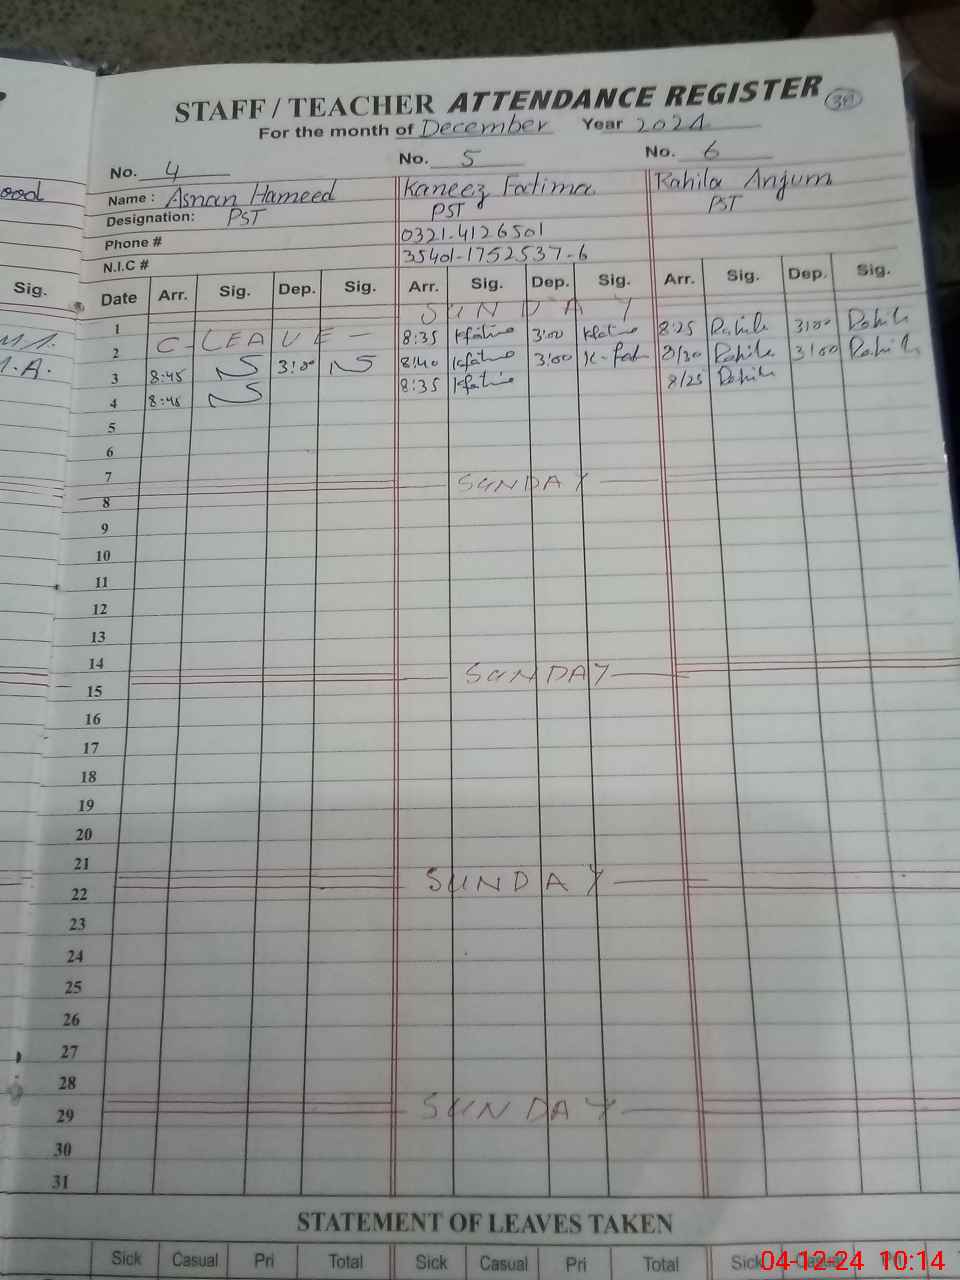 STAFF / TEACHER ATTENDANCE REGISTER
For the month of December Year 2024
No. 4 No. 5 No. 6
Name : Asnan Hameed Kaneez Fatima Rahila Anjum
Designation: PST PST PST
Phone # 0321-4126501
N.I.C # 35401-1752537-6
Sig. Date Arr. Sig. Dep. Sig. Arr. Sig. Dep. Sig. Arr. Sig. Dep. Sig.
1 SUNDAY
2 C-LEAVE 8:35 Kfatima 3:00 Kfatima 8:25 Rahila 3:00 Rahila
3 8:45 3:00 8:40 Kfatima 3:00 K-fat 8/30 Rahila 3:00 Rahila
4 8:45 8:35 Kfatima 8/25 Rahila
5
6
7
8 SUNDAY
9
10
11
12
13
14
15 SUNDAY
16
17
18
19
20
21
22 SUNDAY
23
24
25
26
27
28
29 SUNDAY
30
31
STATEMENT OF LEAVES TAKEN
Sick Casual Pri Total Sick Casual Pri Total Sick Casual Pri
04-12-24 10:14